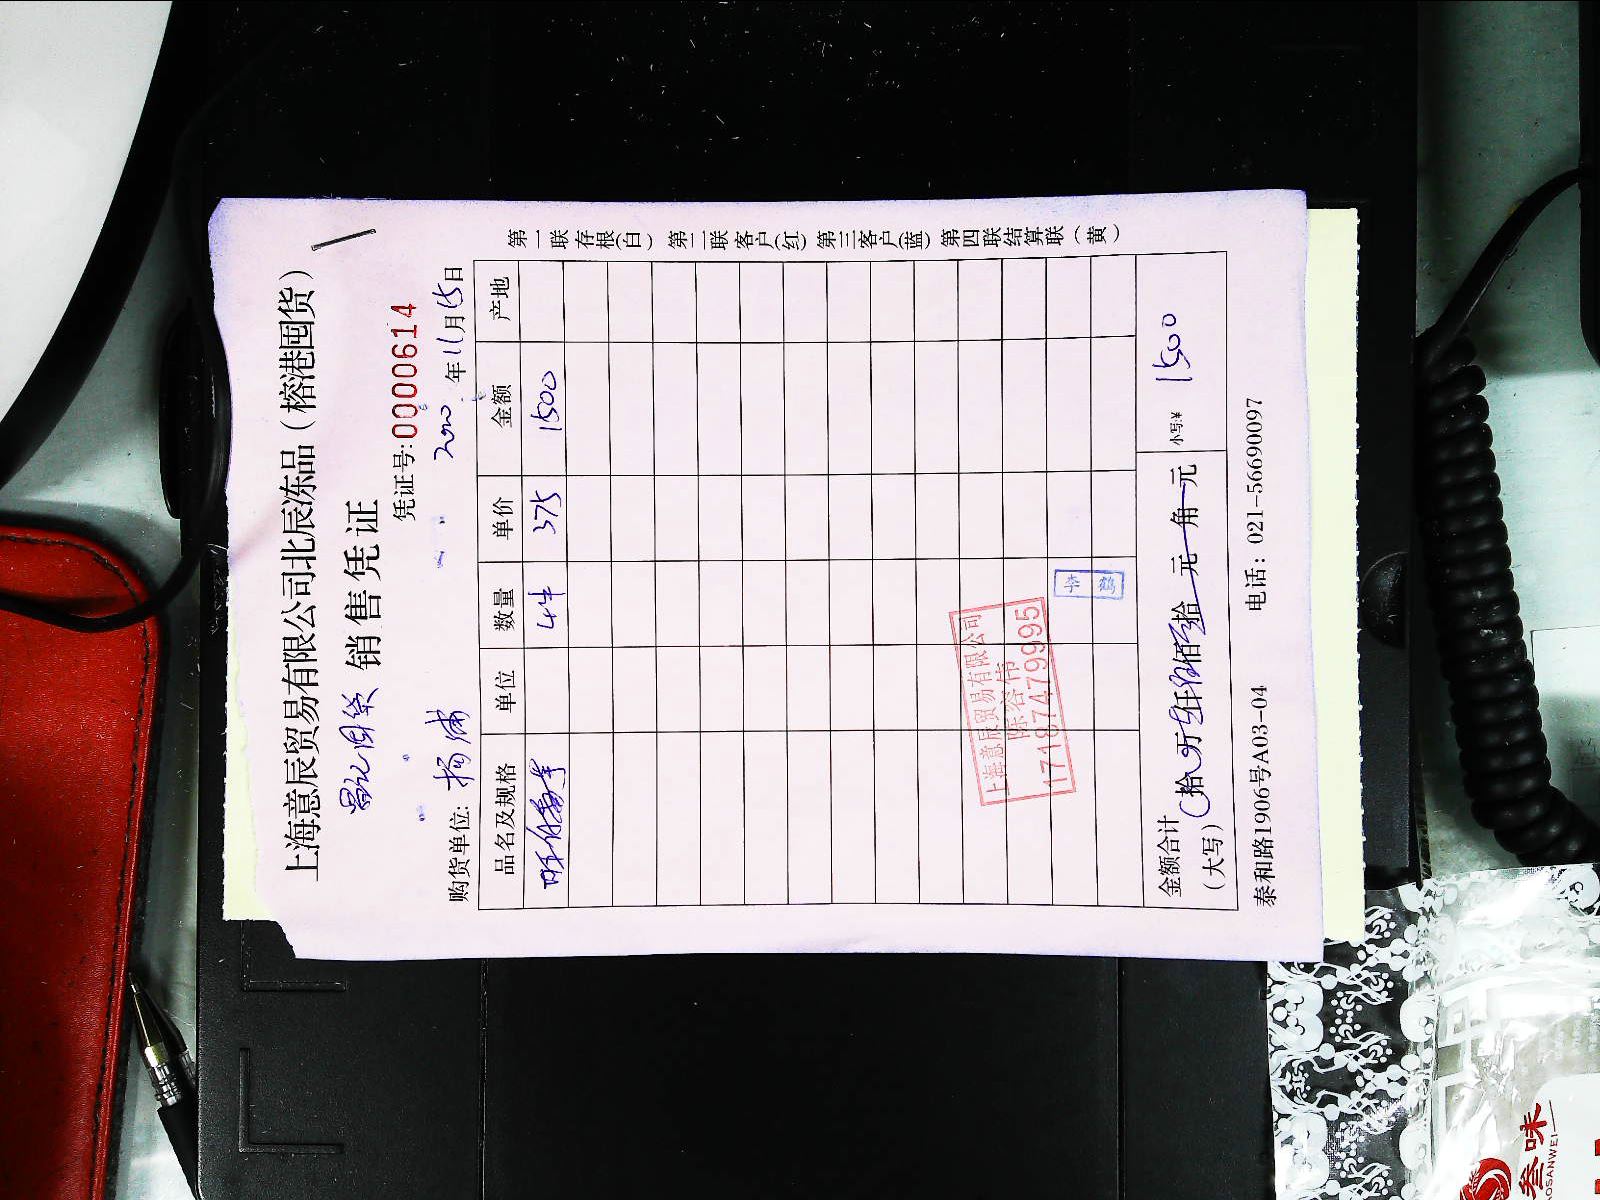 上海意辰贸易有限公司北辰冻品（榕港囤货）
销售凭证
凭证号:0000614
购货单位: 杨浦 2020年11月15日
品名及规格 单位 数量 单价 金额 产地
4件 375 1500
第一联存根(白) 第二联客户(红) 第三客户(蓝) 第四联结算联（黄）
上海意辰贸易有限公司
陈容伟
17187479995
李鹤
金额合计（大写） 拾 万 壹仟 伍佰 拾 元 角 元 小写:¥ 1500
泰和路1906号A03-04 电话：021-56690097
叁味
OSANWEI